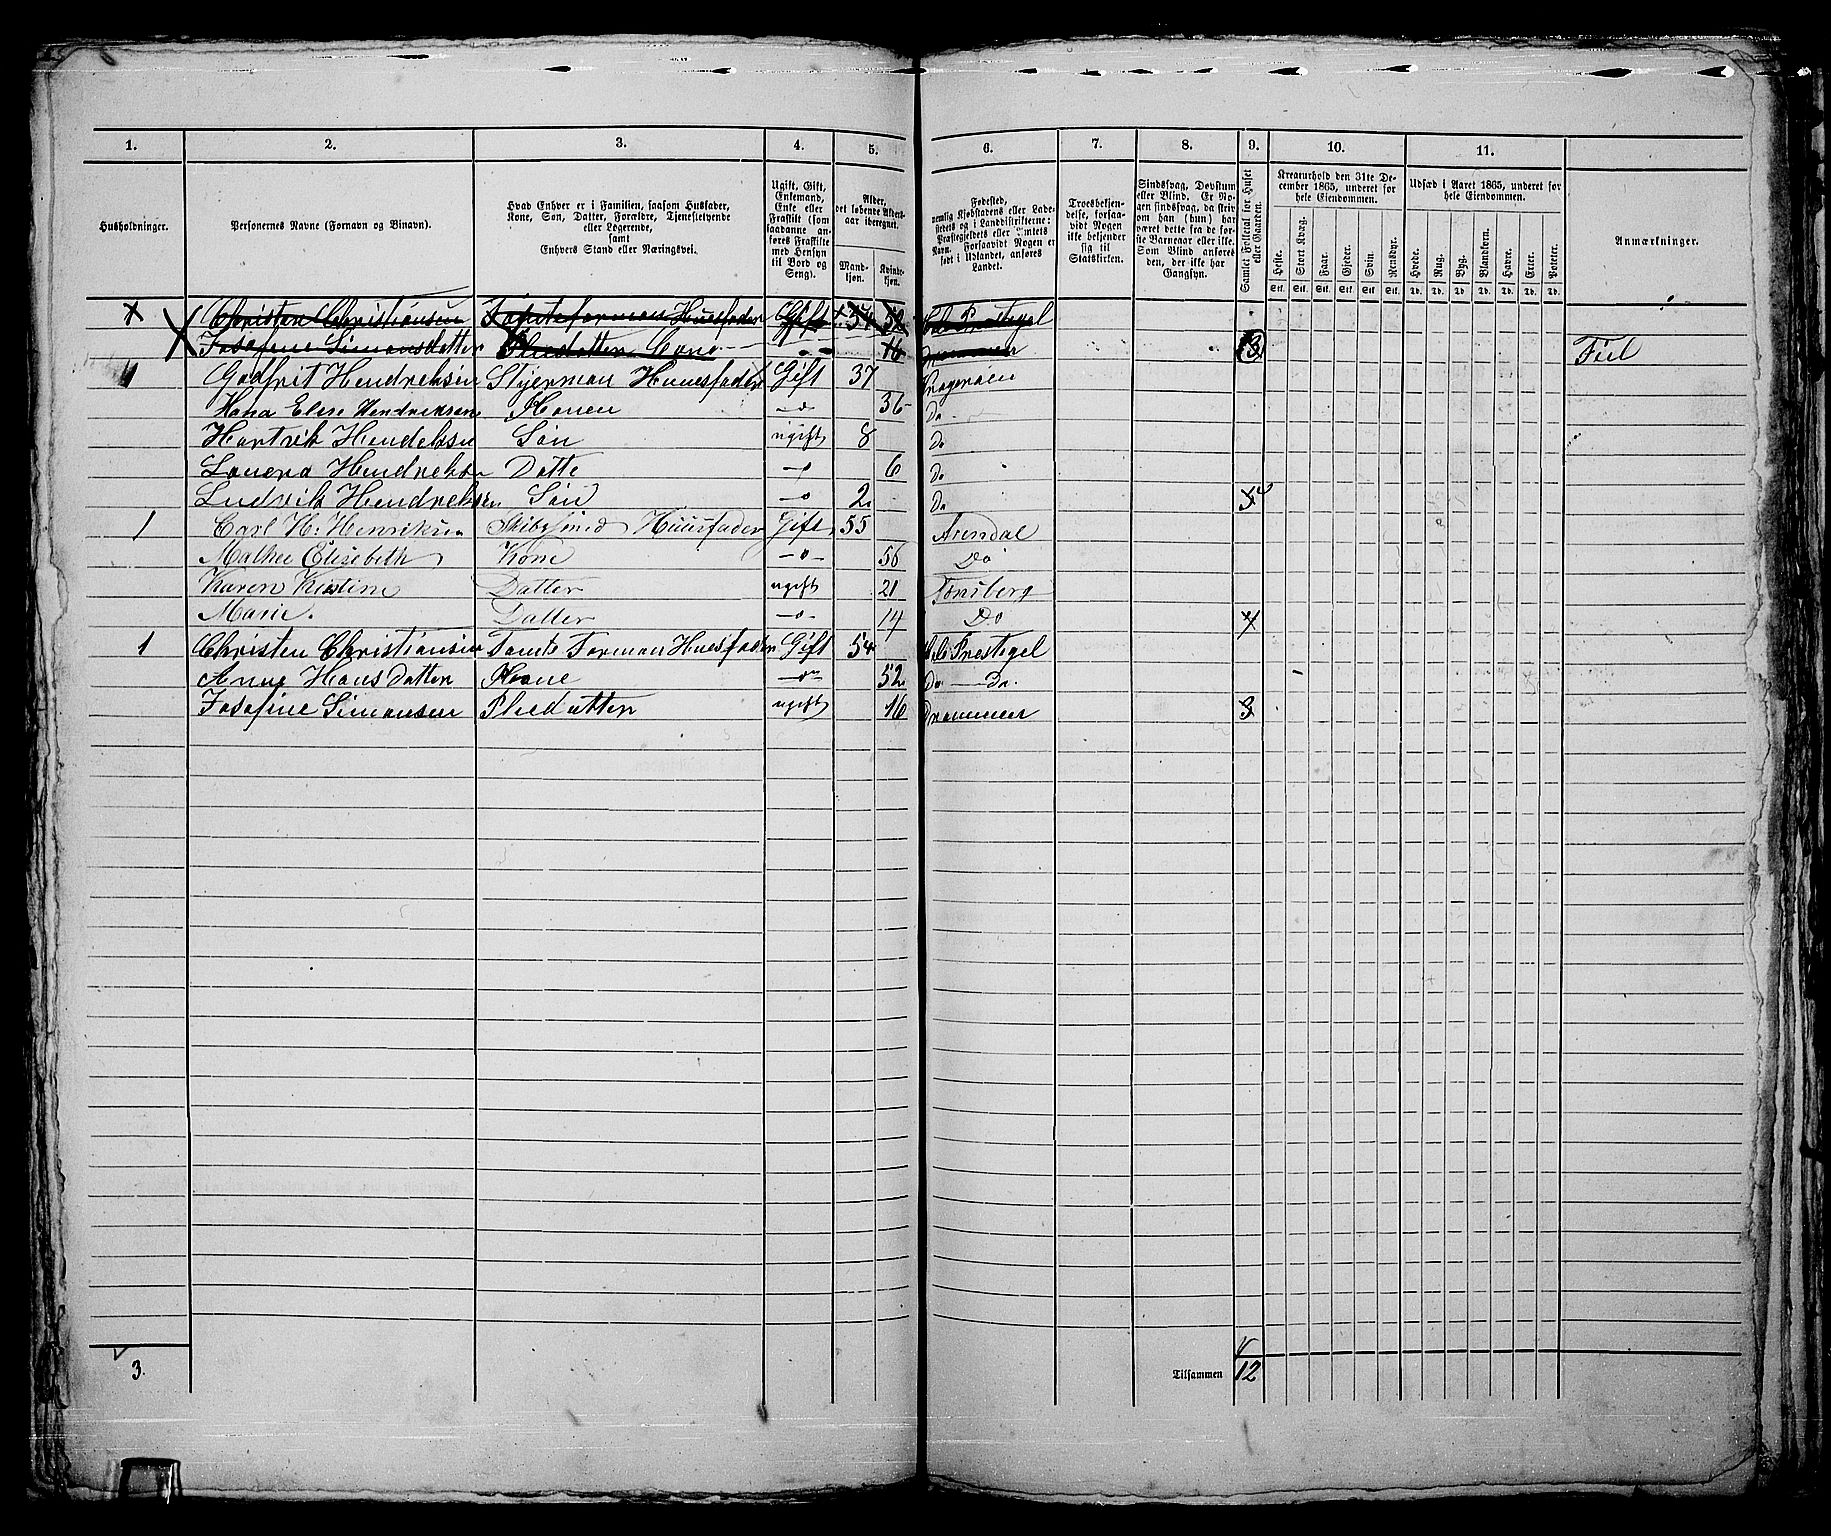 1. 2. 3. 4. 5. 6. 7. 8. 9. 10. 11.
Husholdninger.
Personernes Navne (Fornavn og Binavn).
Hvad Enhver er i Familien, saasom Husfader,
Kone, Søn, Datter, Forældre, Tjenestetyende
eller Logerende,
samt
Enhvers Stand eller Næringsvei.
Ugift, Gift,
Enkemand,
Enke eller
Fraskilt (som
saadanne an-
føres Fraskilte
med Hensyn
til Bord og
Seng).
Alder,
det løbende Alders-
aar iberegnet.
Mand-
kjøn.
Kvinde-
kjøn.
Fødested,
nemlig Kjøbstadens eller Lade-
stedets og i Landdistrikterne:
Præstegjeldets eller Amtets
Navn. Forsaavidt Nogen er
født i Udlandet, anføres
Landet.
Troesbekjen-
delse, forsaa-
vidt Nogen
ikke bekjender
sig til
Statskirken.
Sindssvag, Døvstum
eller Blind. Er No-
gen sindssvag, da skriv
om han (hun) har
været dette fra de før-
ste Barneaar eller ikke.
Som Blind anføres
den, der ikke har
Gangsyn.
Samlet Folketal for Huset
eller Gaarden.
Kreaturhold den 31te De-
cember 1865, underet for
hele Eiendommen.
Heste. Stort Kvæg. Faar. Gjeder. Svin. Rensdyr.
Stk. Stk. Stk. Stk. Stk. Stk.
Udsæd i Aaret 1865, underet for
hele Eiendommen.
Hvede. Rug. Byg. Blandkorn. Havre. Erter. Poteter.
Td. Td. Td. Td. Td. Td. Td.
Anmærkninger.
Christen Christiansen Tomteforman Huusfader Gift 54 52
Josefine Simonsdatter Pledatter Cone 16 Drammen 3 Fiel
Godfrit Hendreksen Styerman Huuesfader Gift 37 Kragerøen
Hana Elese Hendreksen Konen -o- 36 Do
Hartvik Hendeksen Søn ugift 8 Do
Lauera Hendreksen Datte -o 6 Do
Ludvik Hendreksen Søn -o 2 Do 5
1 Carl H. Henriksen Skibssmed Huusfader Gift 55 Arendal
Malhee Elisebeth Kone -o- 56 Do
Karen Kirstine Datter ugift 21 Tønsberg
Marie. Datter -o- 14 Do 4
1 Christen Christiansen Tomte Forman Huesfader Gift 54 Prestegel
Anne Hans Datter Kone -o- 52 Do Do.
Josefine Simonsen Pledatter ugift 16 Drammen 3
3. Tilsammen 12